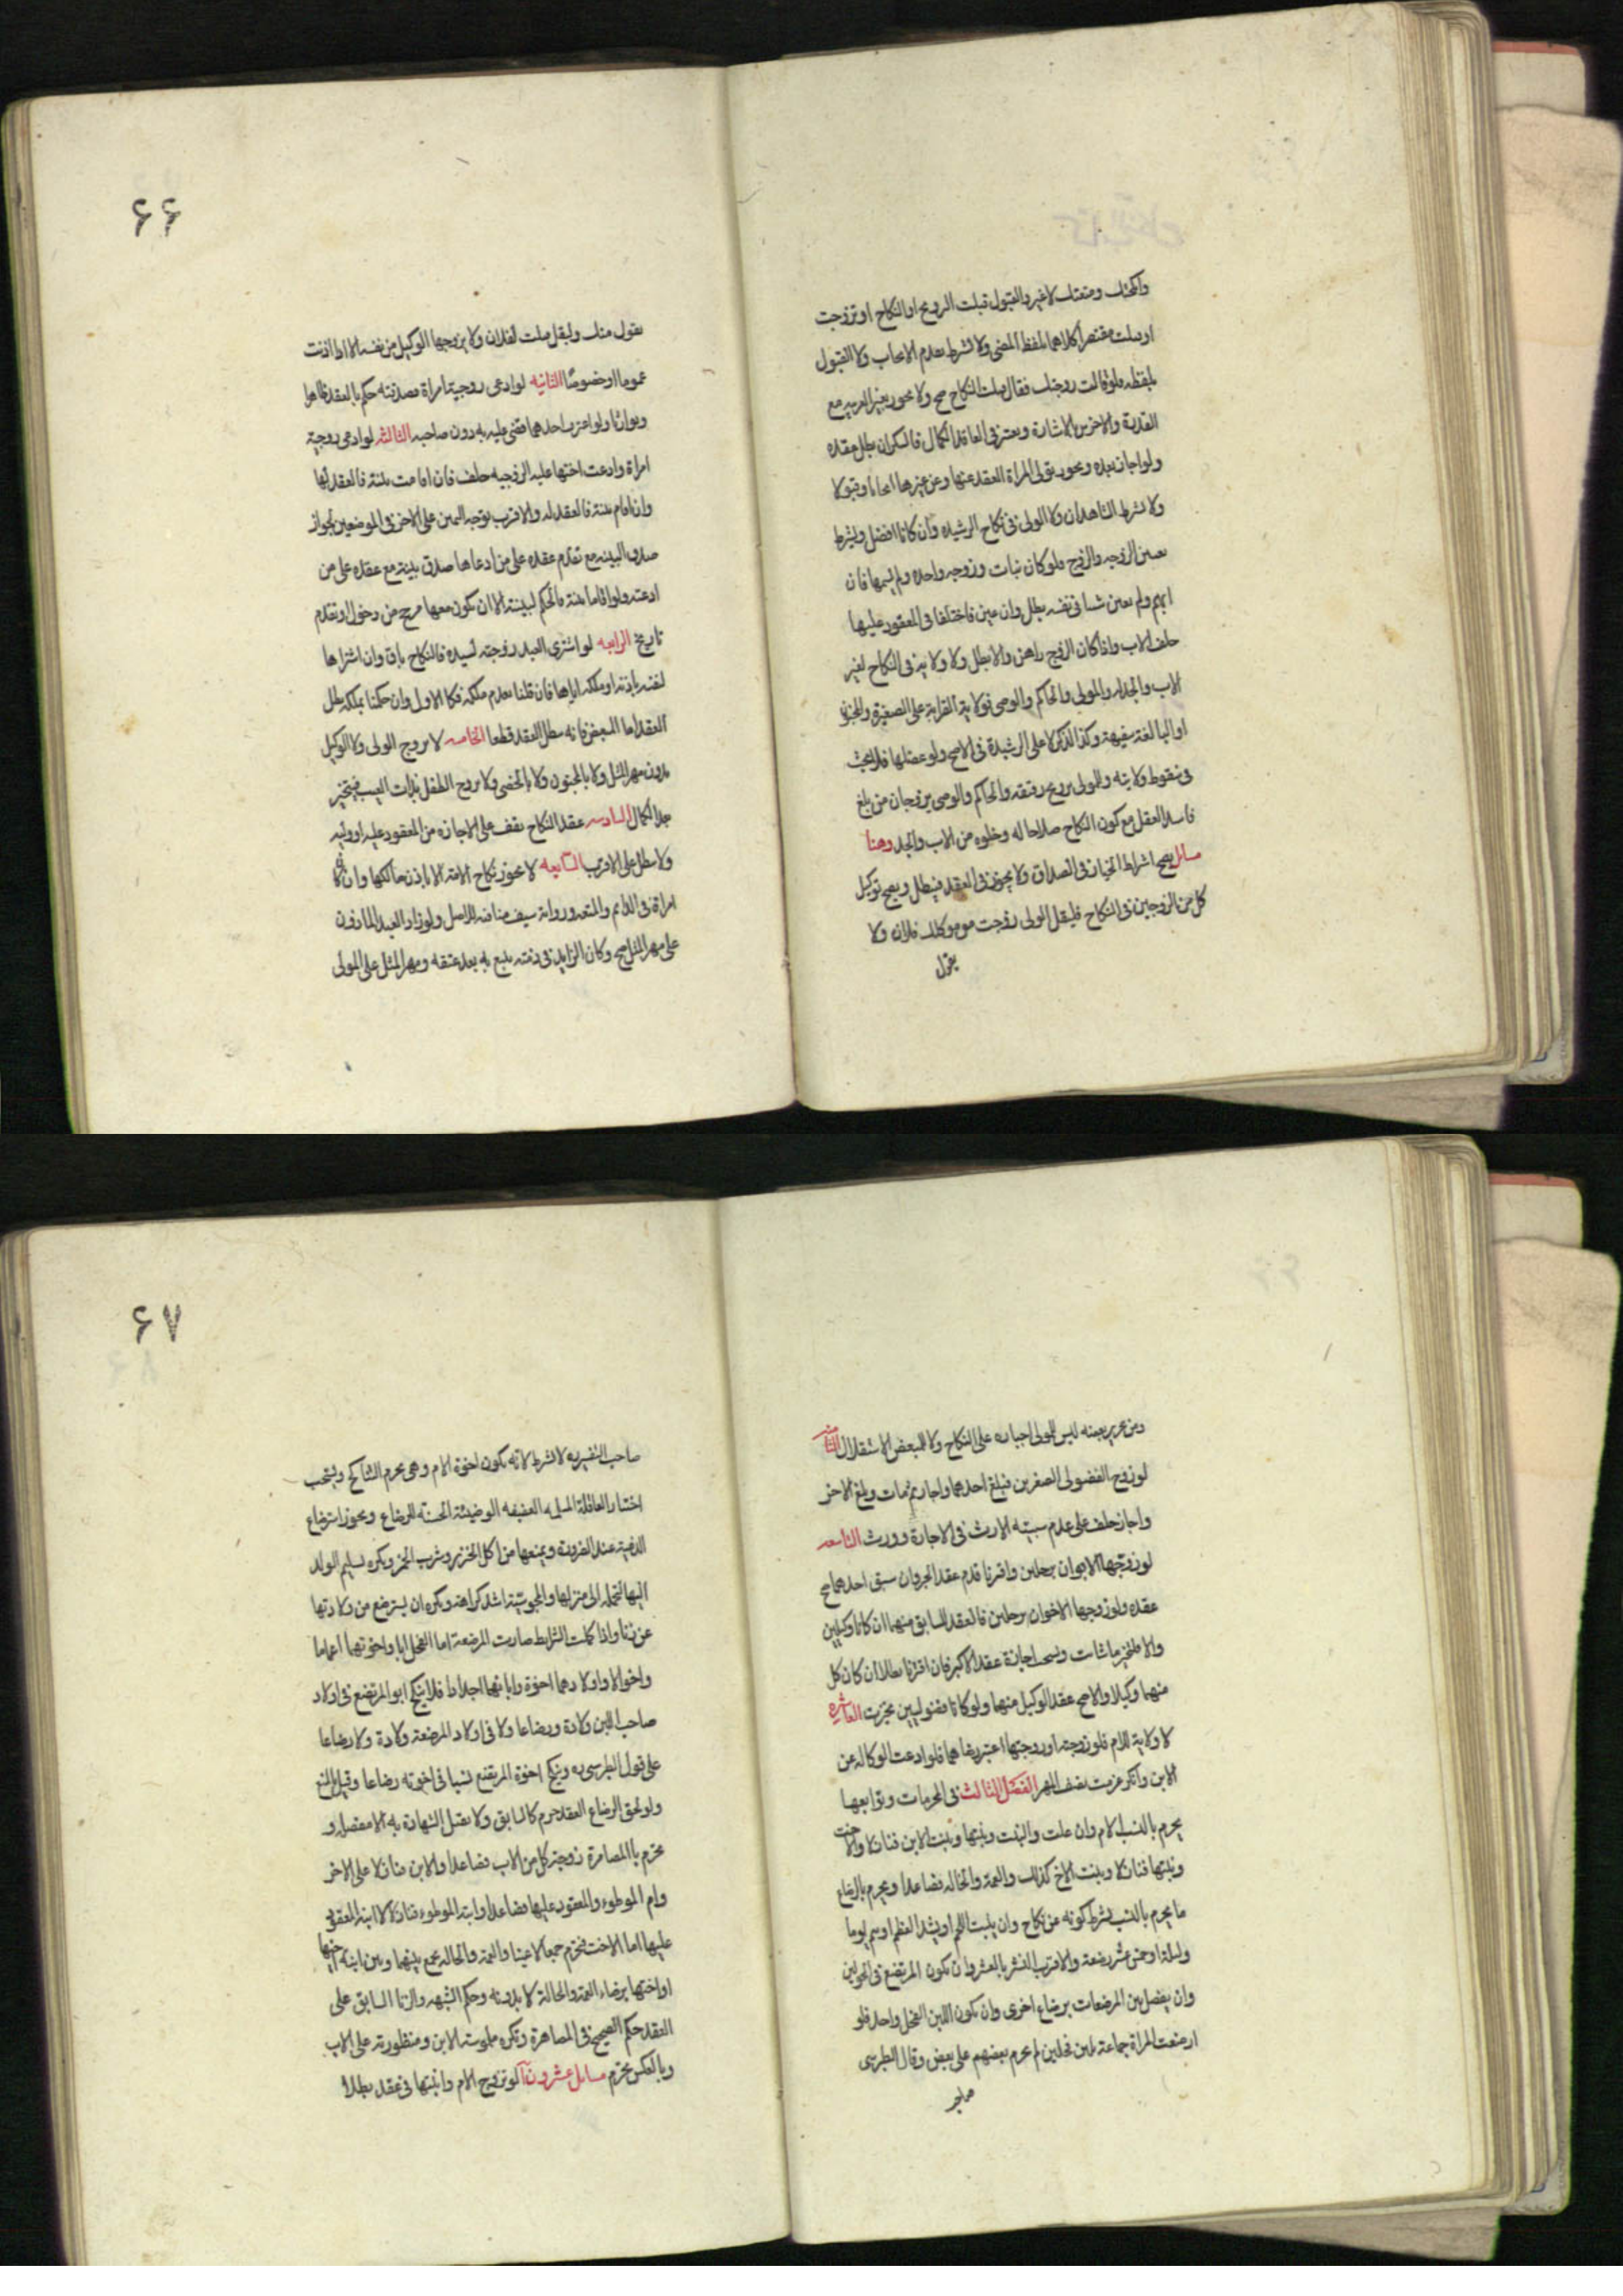 وأنكحتك ومتعتك لا غير والقبول قبلت التزويج او النكاح او تزوجت
او قبلت مقتصرا كلاهما بلفظ المضى ولا يشترط تقديم الايجاب ولا القبول
بلفظه فلو قالت زوجتك فقال قبلت النكاح صح ولا يجوز بغير العربيه مع
القدرة والاخرس بالاشارة ويعتبر فى العاقد الكمال فالسكران بطل عقده
ولو اجاز بعده ويجوز تولى المراة العقد عنها وعن غيرها ايجابا وقبولا
ولا يشترط الشاهدان ولا الولى فى نكاح الرشيده وان كانا افضل ويشترط
تعيين الزوجه والزوج فلو كان له بنات وزوجه واحده ولم يسمها فان
ابهم ولم يعين شيئا فى نفسه بطل وان عين فاختلفا فى المعقود عليها
حلف الاب واذا كان الزوج راهن والا بطل ولا ولاية فى النكاح لغير
الاب والجد له والمولى والحاكم والوصى فولاية القرابة على الصغيرة والمجنونة
او البالغة سفيهة وكذا الذكر لا على الرشيدة فى الاصح ولو عضلها فلا بحث
فى سقوط ولايته وللمولى تزويج رقيقه والحاكم والوصى يزوجان من بلغ
فاسد العقل مع كون النكاح صلاحا له وخلوه من الاب والجد وهنا
مسائل يصح اشتراط الخيار فى الصداق ولا يجوز فى العقد فيبطل ويصح توكيل
كل من الزوجين فى النكاح فليقل الولى زوجت من موكلك فلان ولا
يقول
۶۶
يقول منك وليقل قبلت لفلان ولا يزوجها الوكيل من نفسه الا اذا اذنت
عموما او خصوصًا الثانيه لو ادعى زوجية امراة فصدقته حكم بالعقد ظاهرا
وتوارثا ولو اعترف احدهما قضى عليه به دون صاحبه الثالثه لو ادعى زوجية
امراة وادعت اختها عليه الزوجيه حلف فان اقامت بينة فالعقد لها
وان اقام بينة فالعقد له والاقرب توجه اليمين على الاخر فى الموضعين لجواز
صدق البينه مع تقدم عقده على من ادعاها وصدق بينة مع عقده على من
ادعته ولو اقاما بينة فالحكم لبينته الا ان يكون معها مرجح من دخول او تقدم
تاريخ الرابعه لو اشترى العبد زوجته لسيده فالنكاح باق وان اشتراها
لنفسه باذنه او ملكه اياها فان قلنا بعدم ملكه فكالاول وان حكمنا بملكه بطل
العقد اما المبعض فانه يبطل العقد قطعا الخامسه لا يزوج الولى ولا الوكيل
بدون مهر المثل ولا بالمجنون ولا بالخصى ولا يزوج الطفل بذات العيب فيتخير
بعد الكمال السادسه عقد النكاح يقف على الاجازه من المعقود عليه او وليه
ولا يبطل على الاقرب السابعه لا يجوز نكاح الامة الا باذن مالكها وان كان
امراة فى الدايم والمتعه ورواية سيف منافيه للاصل ولو زاد العبد الماذون
على مهر المثل صح وكان الزايد فى ذمته يتبع به بعد عتقه ومهر المثل على المولى
ومن تحرر بعضه ليس للمولى اجباره على النكاح ولا للمبعض الاستقلال الثامنه
لو زوج الفضولى الصغيرين فبلغ احدهما واجاز ثم مات وبلغ الاخر
واجاز حلف على عدم سببيه الارث فى الاجازة وورث التاسعه
لو زوجها الابوان برجلين واقترنا قدم عقد الجد وان سبق احدهما صح
عقده ولو زوجها الاخوان برجلين فالعقد للسابق منهما ان كانا وكيلين
والا فلتتخير ما شاءت ويستحب اجازة عقد الاكبر فان اقترنا بطلا ان كان كل
منهما وكيلا والاصح عقد الوكيل منهما ولو كانا فضوليين تخيرت العاشره
لا ولاية للام فلو زوجته او زوجتها اعتبر رضاهما فلو ادعت الوكاله عن
الابن وانكر غرمت نصف المهر الفصل الثالث فى المحرمات وتوابعها
يحرم بالنسب الام وان علت والبنت وبنتها وبنت الابن فنازلا والاخت
وبنتها فنازلا وبنت الاخ كذلك والعمة والخاله فصاعدا ويحرم بالرضاع
ما يحرم بالنسب بشرط كونه عن نكاح وان ينبت اللحم او يشد العظم او يتم يوما
وليلة او خمس عشر رضعة والاقرب النشر بالعشر وان يكون المرتضع فى الحولين
وان لا يفصل بين الرضعات برضاع اخرى وان يكون اللبن لفحل واحد فلو
ارضعت المراة جماعة بلبن فحلين لم يحرم بعضهم على بعض وقال الطبرسى
صاحب
۶۷
صاحب التفسير ره لا يشترط لانه يكون اخوة الام وهى تحرم التناكح ويستحب
اختيار العاقلة المسلمه العفيفه الوضيئة الحسنه للرضاع ويجوز استرضاع
الذمية عند الضرورة ويمنعها من اكل الخنزير وشرب الخمر ويكره تسليم الولد
اليها لتحمله الى منزلها والمجوسيّة اشد كراهة ويكره ان يسترضع من ولادتها
عن زنا واذا كملت الشرايط صارت المرضعة اما والفحل ابا واخوتهما اعماما
واخوالا واولادهما اخوة واباؤهما اجدادا فلا ينكح ابو المرتضع فى اولاد
صاحب اللبن ولادة ورضاعا ولا فى اولاد المرضعة ولادة ولا رضاعا
على قول الطبرسى ره وينكح اخوة المرتضع نسبا فى اخوته رضاعا وقيل بالمنع
ولو لحق الرضاع العقد حرم كالسابق ولا تقبل الشهادة به الا مفصلة و
تحرم بالمصاهرة زوجة كل من الاب فصاعدا والابن فنازلا على الاخر
وام الموطوءه والمعقود عليها فصاعدا وابنة الموطوءه فنازلا لا ابنة المعقود
عليها اما الاخت فتحرم جمعا لا عينا والعمة والخاله يجمع بينهما وبين ابنة اخيها
او اختها برضاء العمة والخالة لا بدونه وحكم الشبهه والزنا السابق على
العقد حكم الصحيح فى المصاهرة وتكره ملموسة الابن ومنظورته على الاب
وبالعكس تحرم مسايل عشرون آ لو تزوج الام وابنتها فى عقد بطلا